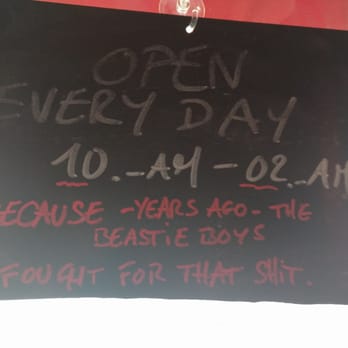 OPEN
EVERY DAY
10.-AM - 02.-AM
BECAUSE -YEARS AGO- THE
BEASTIE BOYS
FOUGHT FOR THAT SHIT.